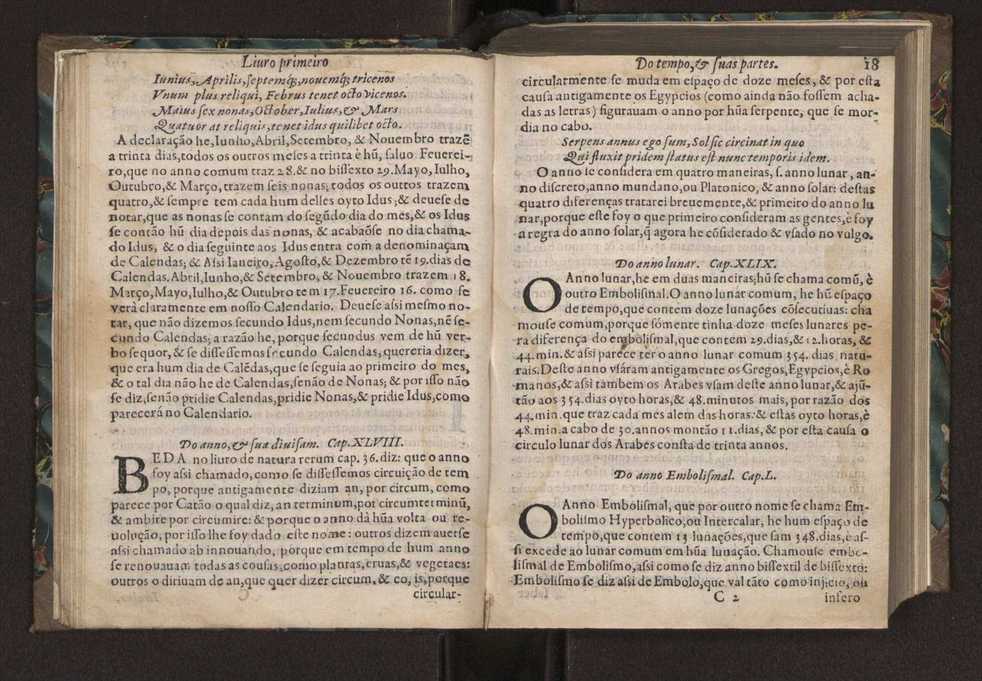 Liuro primeiro
Iunius, Aprilis, septemq́;, nouemq́; tricenos
Vnum plus reliqui, Februs tenet octo vicenos.
Maius sex nonas, October, Iulius, & Mars
Quatuor at reliquis, tenet idus quilibet octo.
A declaração he, Iunho, Abril, Setembro, & Nouembro trazẽ
a trinta dias, todos os outros meses a trinta è hũ, saluo Feuerei-
ro, que no anno comum traz 28. & no bissexto 29. Mayo, Iulho,
Outubro, & Março, trazem seis nonas; todos os outros trazem
quatro, & sempre tem cada hum delles oyto Idus; & deuese de
notar, que as nonas se contam do segũdo dia do mes, & os Idus
se contão hũ dia depois das nonas, & acabaõse no dia chama-
do Idus, & o dia seguinte aos Idus entra com a denominaçam
de Calendas; & Assi Ianeiro, Agosto, & Dezembro tẽ 19. dias de
Calendas. Abril, Iunho, & Setembro, & Nouembro trazem 18.
Março, Mayo, Iulho, & Outubro tem 17. Feuereiro 16. como se
verà claramente em nosso Calendario. Deuese assi mesmo no-
tar, que não dizemos secundo Idus, nem secundo Nonas, nẽ se-
cundo Calendas; a razão he, porque secundus vem de hũ ver-
bo sequor, & se dissessemos secundo Calendas, quereria dizer,
que era hum dia de Calẽdas, que se seguia ao primeiro do mes,
& o tal dia não he de Calendas, senão de Nonas; & por isso não
se diz, senão pridie Calendas, pridie Nonas, & pridie Idus, como
parecerá no Calendario.
Do anno, & sua diuisam. Cap. XLVIII.
BEDA no liuro de natura rerum cap. 36. diz: que o anno
foy assi chamado, como se dissessemos circuição de tem
po, porque antigamente diziam an, por circum, como
parece por Catão o qual diz, an terminum, por circum terminũ,
& ambire por circumire: & porque o anno dà hũa volta ou re-
uolução, por isso lhe foy dado este nome: outros dizem auerse
assi chamado ab innouando, porque em tempo de hum anno
se renouauam todas as cousas, como plantas, eruas, & vegetaes:
outros o diriuam de an, que quer dizer circum, & eo, is, porque
circular-
Do tempo, & suas partes. 18
circularmente se muda em espaço de doze meses, & por esta
causa antigamente os Egypcios (como ainda não fossem acha-
das as letras) figurauam o anno por hũa serpente, que se mor-
dia no cabo.
Serpens annus ego sum, Sol sic circinat in quo
Qui fluxit pridem status est nunc temporis idem.
O anno se considera em quatro maneiras, s. anno lunar, an-
no discreto, anno mundano, ou Platonico, & anno solar: destas
quatro diferenças tratarei breuemente, & primeiro do anno lu
nar, porque este foy o que primeiro consideram as gentes, è foy
a regra do anno solar, q̃ agora he cõsiderado & vsado no vulgo.
Do anno lunar. Cap. XLIX.
O Anno lunar, he em duas maneiras; hũ se chama comũ, è
outro Embolismal. O anno lunar comum, he hũ espaço
de tempo, que contem doze lunações cõsecutiuas: cha
mouse comum, porque sómente tinha doze meses lunares pe-
ra diferença do embolismal, que contem 29. dias, & 12. horas, &
44. min. & assi parece ter o anno lunar comum 354. dias natu-
rais. Deste anno vsáram antigamente os Gregos, Egypcios, è Ro
manos, & assi tambem os Arabes vsam deste anno lunar, & ajũ-
tão aos 354. dias oyto horas, & 48. minutos mais, por razão dos
44. min. que traz cada mes alem das horas: & estas oyto horas, è
48. min. a cabo de 30. annos montão 11. dias, & por esta causa o
circulo lunar dos Arabes consta de trinta annos.
Do anno Embolismal. Cap. L.
O Anno Embolismal, que por outro nome se chama Em-
bolismo Hyperbolico, ou Intercalar, he hum espaço de
tempo, que contem 13 lunações, que sam 348. dias, è as-
si excede ao lunar comum em hũa lunação. Chamouse embo-
lismal de Embolismo, assi como se diz anno bissextil de bissexto:
Embolismo se diz assi de Embolo, que val tãto como injicio, ou
C 2 insero